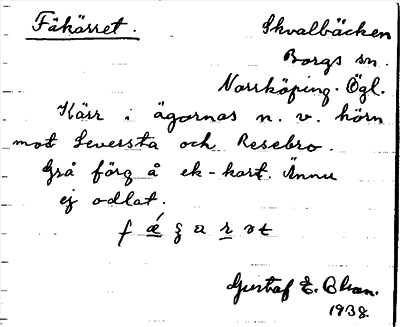 Fäkärret.
Skvalbäcken
Borgs sn.
Norrköping. Ögl.
Kärr i ägornas n. v. hörn
mot Leversta och Resebro.
Grå färg å ek-kart. Ännu
ej odlat.
Gustaf E.
1938.